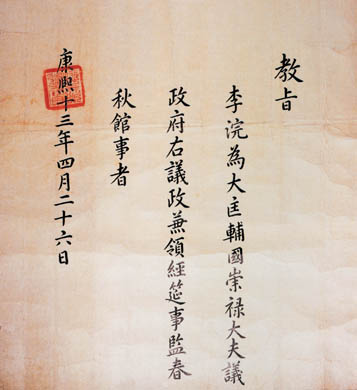 教旨
李浣為大匡輔國崇禄大夫議
政府右議政兼領經筵事監春
秋館事者
康熙十三年四月二十六日